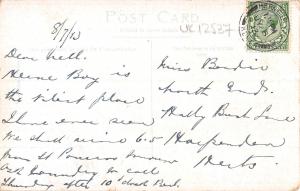 8/7/12
POST CARD
UK12527
Dear Nell.
Herne Bay is
the vilest place
I have ever seen
We shall arrive 6.5
from St Pancras tomorrow
Ask to call
Thursday after 10 o'clock Best.
Miss Bardin
North End,
Holly Bush Lane
Harpenden
Herts